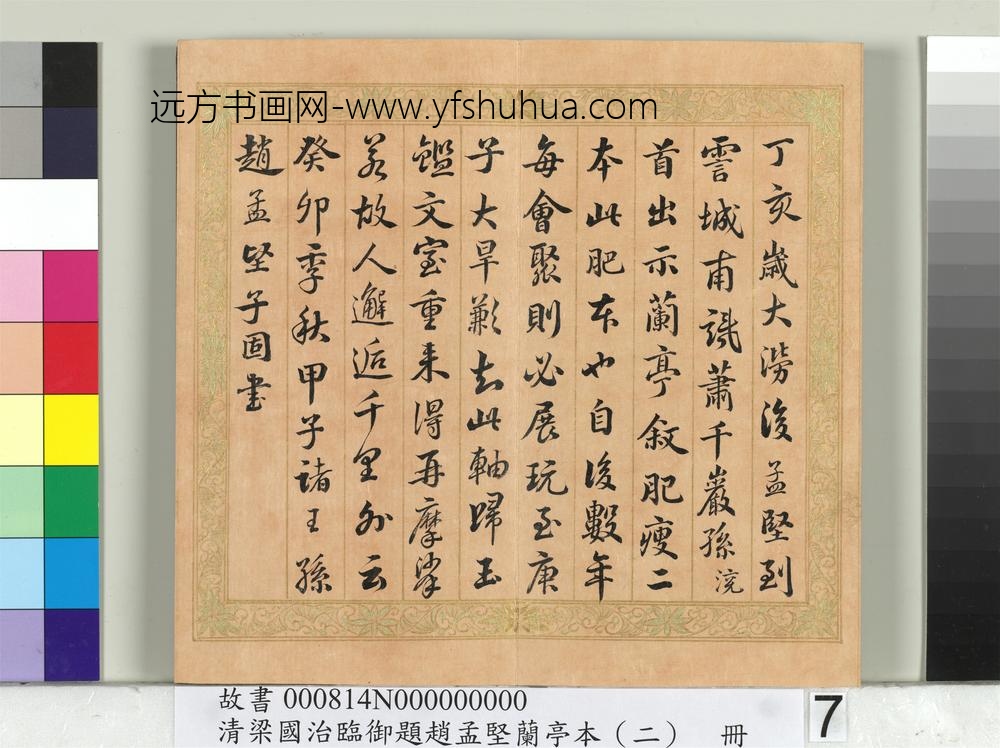 远方书画网-www.yfshuhua.com
丁亥歲大澇後孟堅到
霅城甫識蕭千巖孫沆
首出示蘭亭敘肥瘦二
本此肥本也自後數年
每會聚則必展玩至庚
子大旱歉去此軸歸玉
鑑文室重来得再摩挲
若故人邂逅千里外云
癸卯季秋甲子諸王孫
趙孟坚子固書
故書000814N000000000
清梁國治臨御題趙孟堅蘭亭本（二） 冊
7